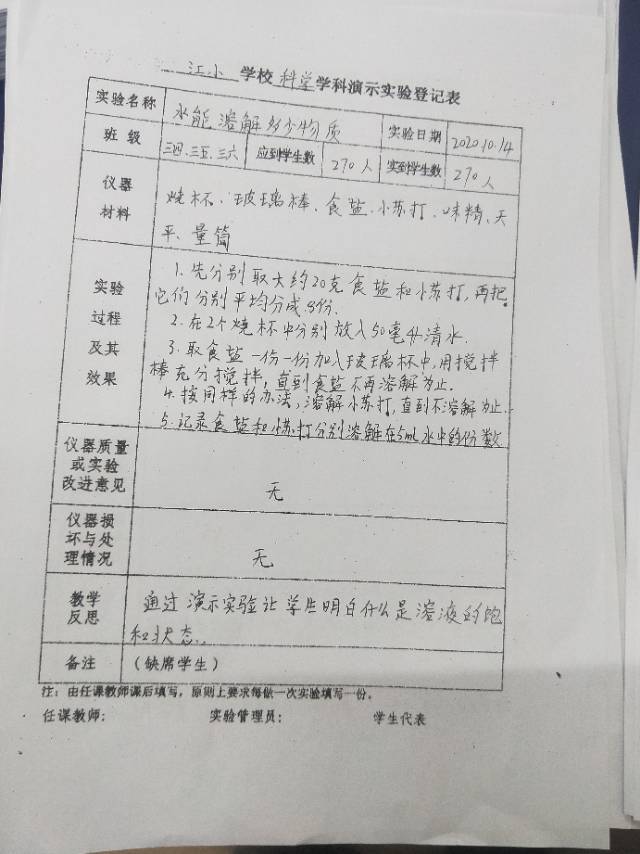 江小 学校 科学 学科演示实验登记表
实验名称 水能溶解多少物质 实验日期 2020.10.14
班 级 三四.三五.三六 应到学生数 270人 实到学生数 270人
仪器 烧杯、玻璃棒、食盐、小苏打、味精、天
材料 平、量筒
1.先分别取大约20克食盐和小苏打,再把
实验 它们分别平均分成8份.
过程 2.在2个烧杯中分别放入50毫升清水.
及其 3.取食盐一份一份加入玻璃杯中,用搅拌
效果 棒充分搅拌,直到食盐不再溶解为止.
4.按同样的办法,溶解小苏打,直到不溶解为止.
5.记录食盐和小苏打分别溶解在5mL水中的份数
仪器质量
或实验
改进意见 无
仪器损
坏与处
理情况 无
教学 通过演示实验让学生明白什么是溶液的饱
反思 和状态..
备注 (缺席学生)
注:由任课教师课后填写,原则上要求每做一次实验填写一份。
任课教师: 实验管理员: 学生代表